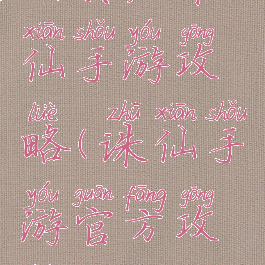 xiān shǒu yóu gōng
仙手游攻
lüè zhū xiān shǒu
略(诛仙手
yóu guān fāng gōng
游官方攻